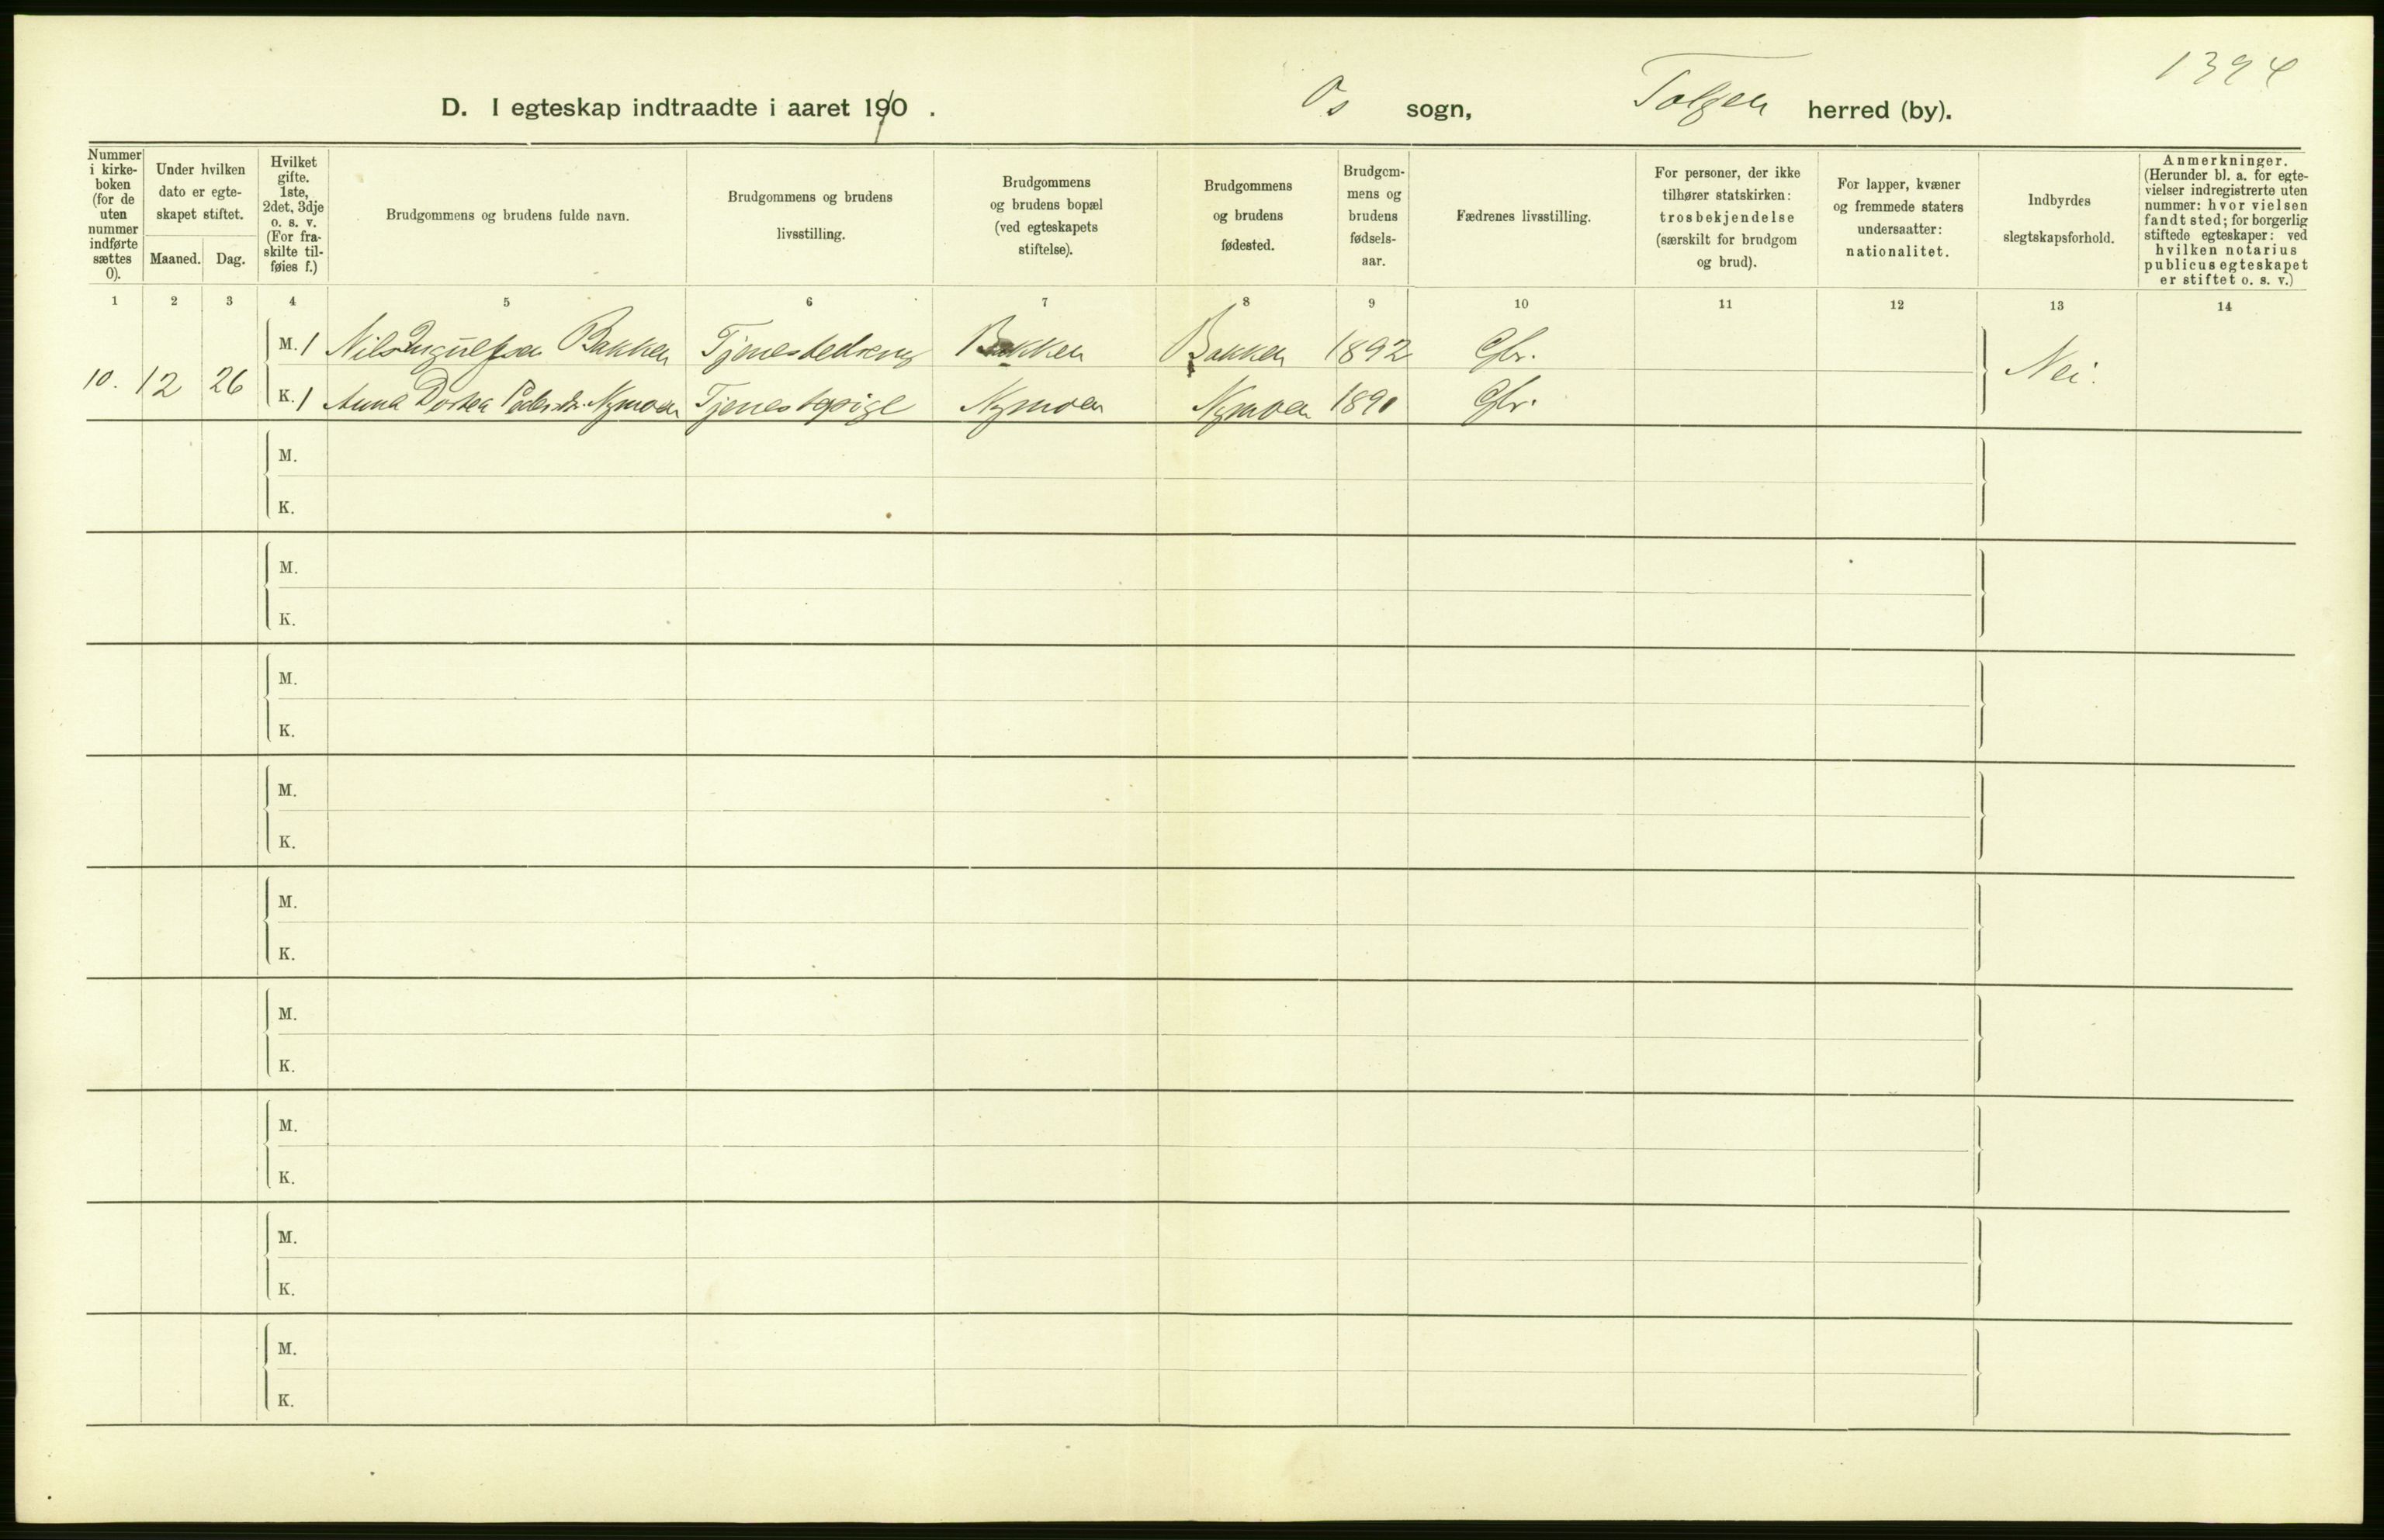 1394
D. I egteskap indtraadte i aaret 1910 . Os sogn, Tolgen herred (by).
Nummer i kirke-boken (for de uten nummer indførte sættes 0).
Under hvilken dato er egte-skapet stiftet.
Maaned. Dag.
Hvilket gifte. 1ste, 2det, 3dje o. s. v. (For fra-skilte til-føies f.)
Brudgommens og brudens fulde navn.
Brudgommens og brudens livsstilling.
Brudgommens og brudens bopæl (ved egteskapets stiftelse).
Brudgommens og brudens fødested.
Brudgom-mens og brudens fødsels-aar.
Fædrenes livsstilling.
For personer, der ikke tilhører statskirken: trosbekjendelse (særskilt for brudgom og brud).
For lapper, kvæner og fremmede staters undersaatter: nationalitet.
Indbyrdes slegtskapsforhold.
Anmerkninger. (Herunder bl. a. for egte-vielser indregistrerte uten nummer: hvor vielsen fandt sted; for borgerlig stiftede egteskaper: ved hvilken notarius publicus egteskapet er stiftet o. s. v.)
1 2 3 4 5 6 7 8 9 10 11 12 13 14
M. 1 Nils Ingulfsen Bakken Tjenestedreng Bakken Bakken 1892 Gbr.
10. 12 26 Nei.
K. 1 Anna Dortea Pedersdr. Nymoen Tjenestepige Nymoen Nymoen 1890 Gbr.
M.
K.
M.
K.
M.
K.
M.
K.
M.
K.
M.
K.
M.
K.
M.
K.
M.
K.